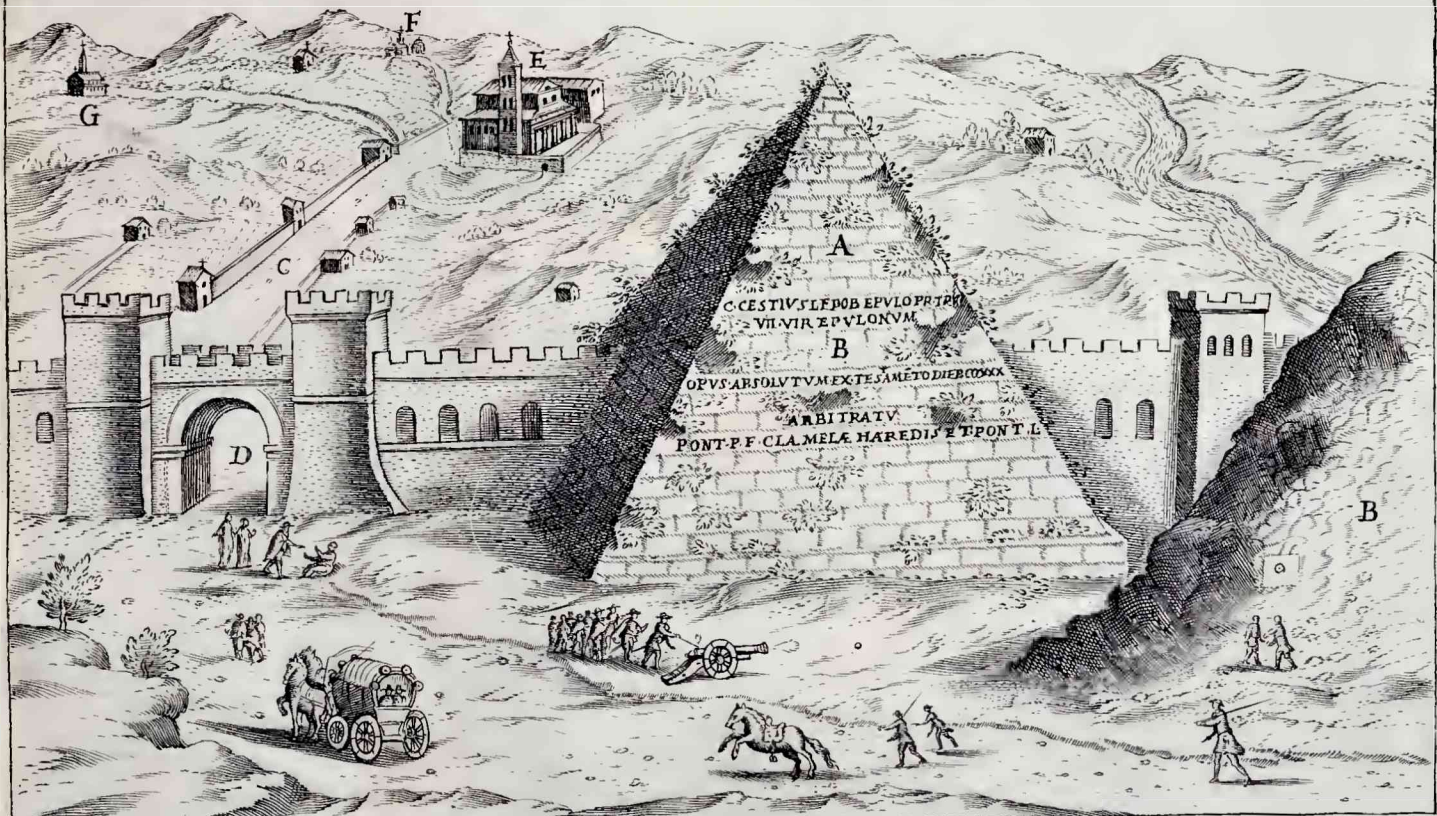 F
E
G
A
C
C·CESTIVS·L·F·POB EPVLO PR·TR·
VII·VIR EPVLONVM
B
OPVS·ABSOLVTVM·EX·TESAMĒTO DIEB
ARBITRATV
D
PONT·P·F·CLA·MELÆ HÆREDIS ET·PONT·L·
B